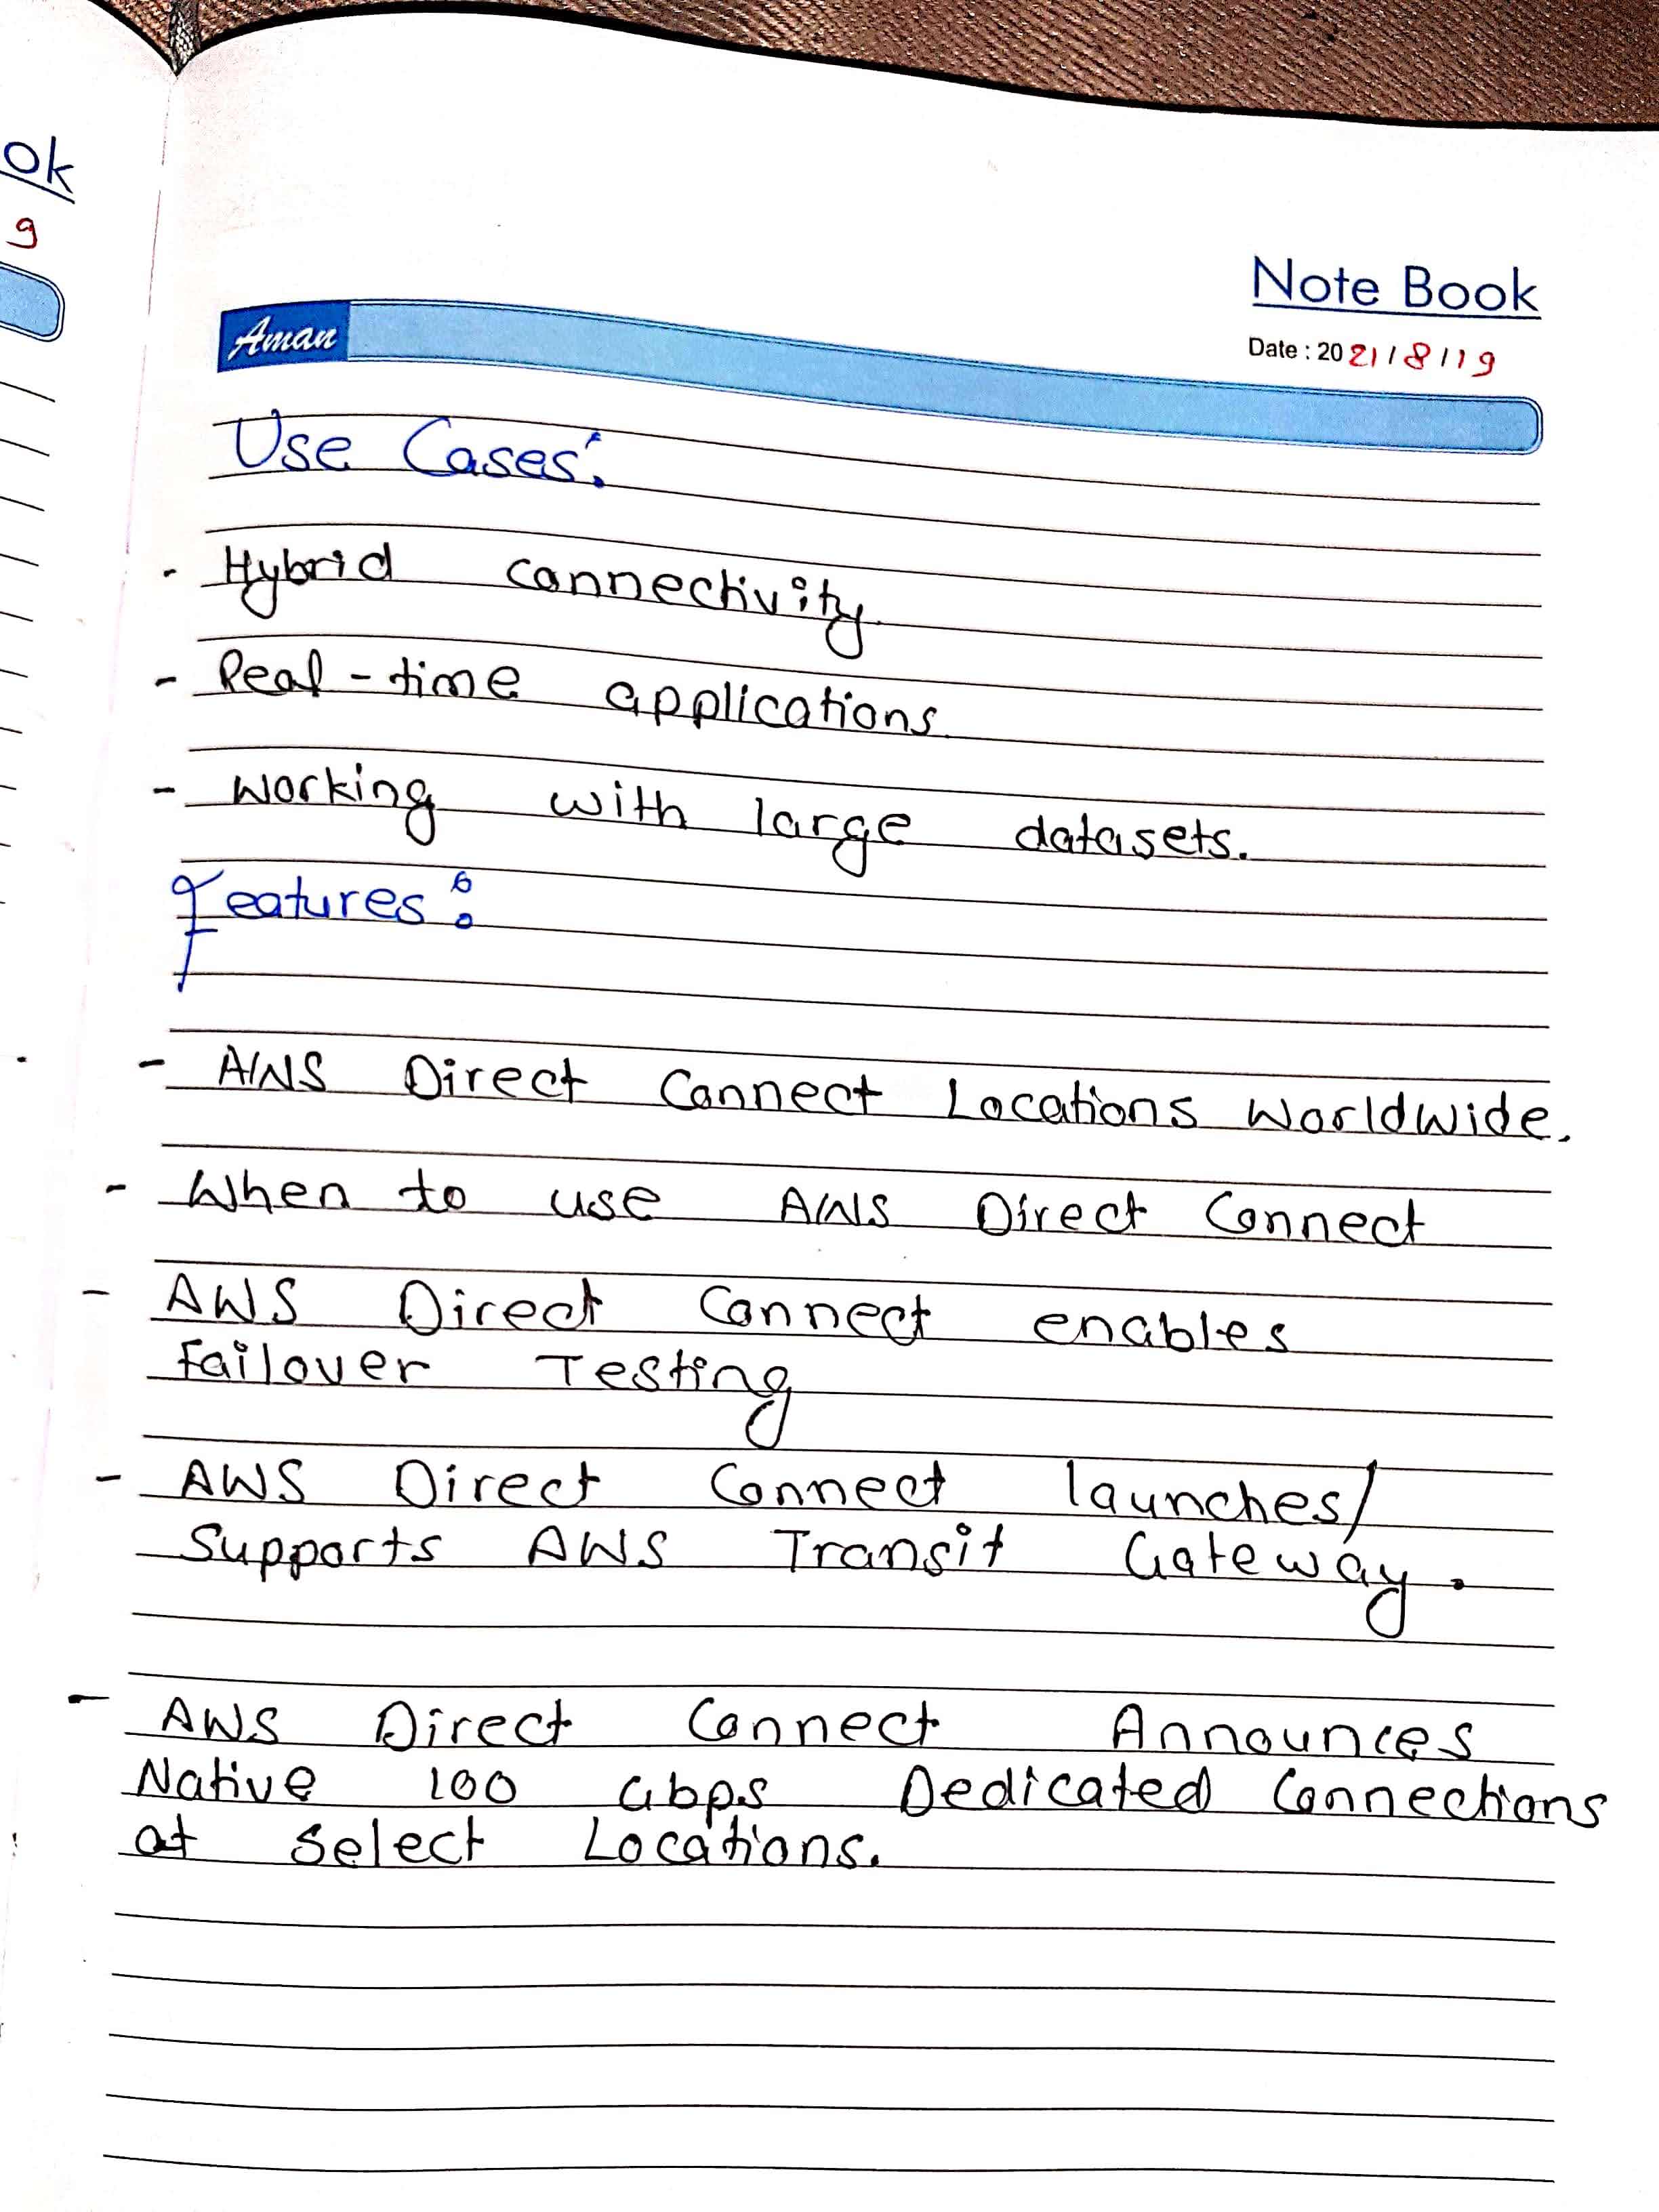 ok
9
Note Book
Aman
Date : 2021/8/19
Use Cases:
- Hybrid connectivity.
- Real-time applications.
- Working with large datasets.
Features:
- AWS Direct Connect Locations Worldwide.
- When to use AWS Direct Connect
- AWS Direct Connect enables
Failover Testing
- AWS Direct Connect launches/
Supports AWS Transit Gateway.
- AWS Direct Connect Announces
Native 100 Gbps Dedicated Connections
at Select Locations.